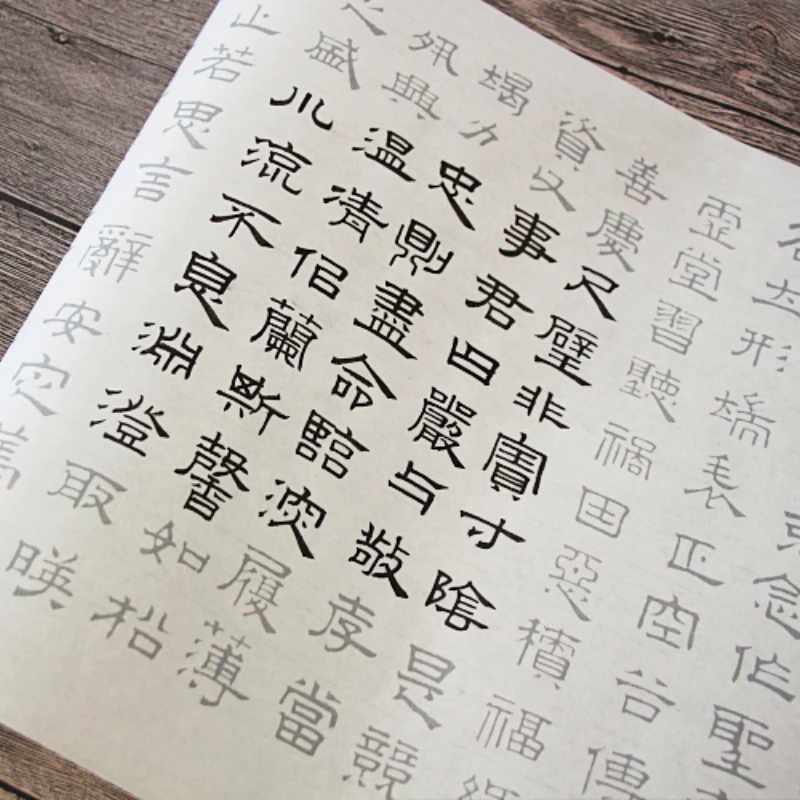 克念作聖
名立形端表正空谷傳
虛堂習聽禍因惡積福緣
善慶尺璧非寶寸陰是競
資父事君曰嚴与敬孝當
竭力忠則盡命臨深履薄
夙興温凊佀蘭斯馨如松
之盛川流不息淵澄取映
止若思言辭安定篤